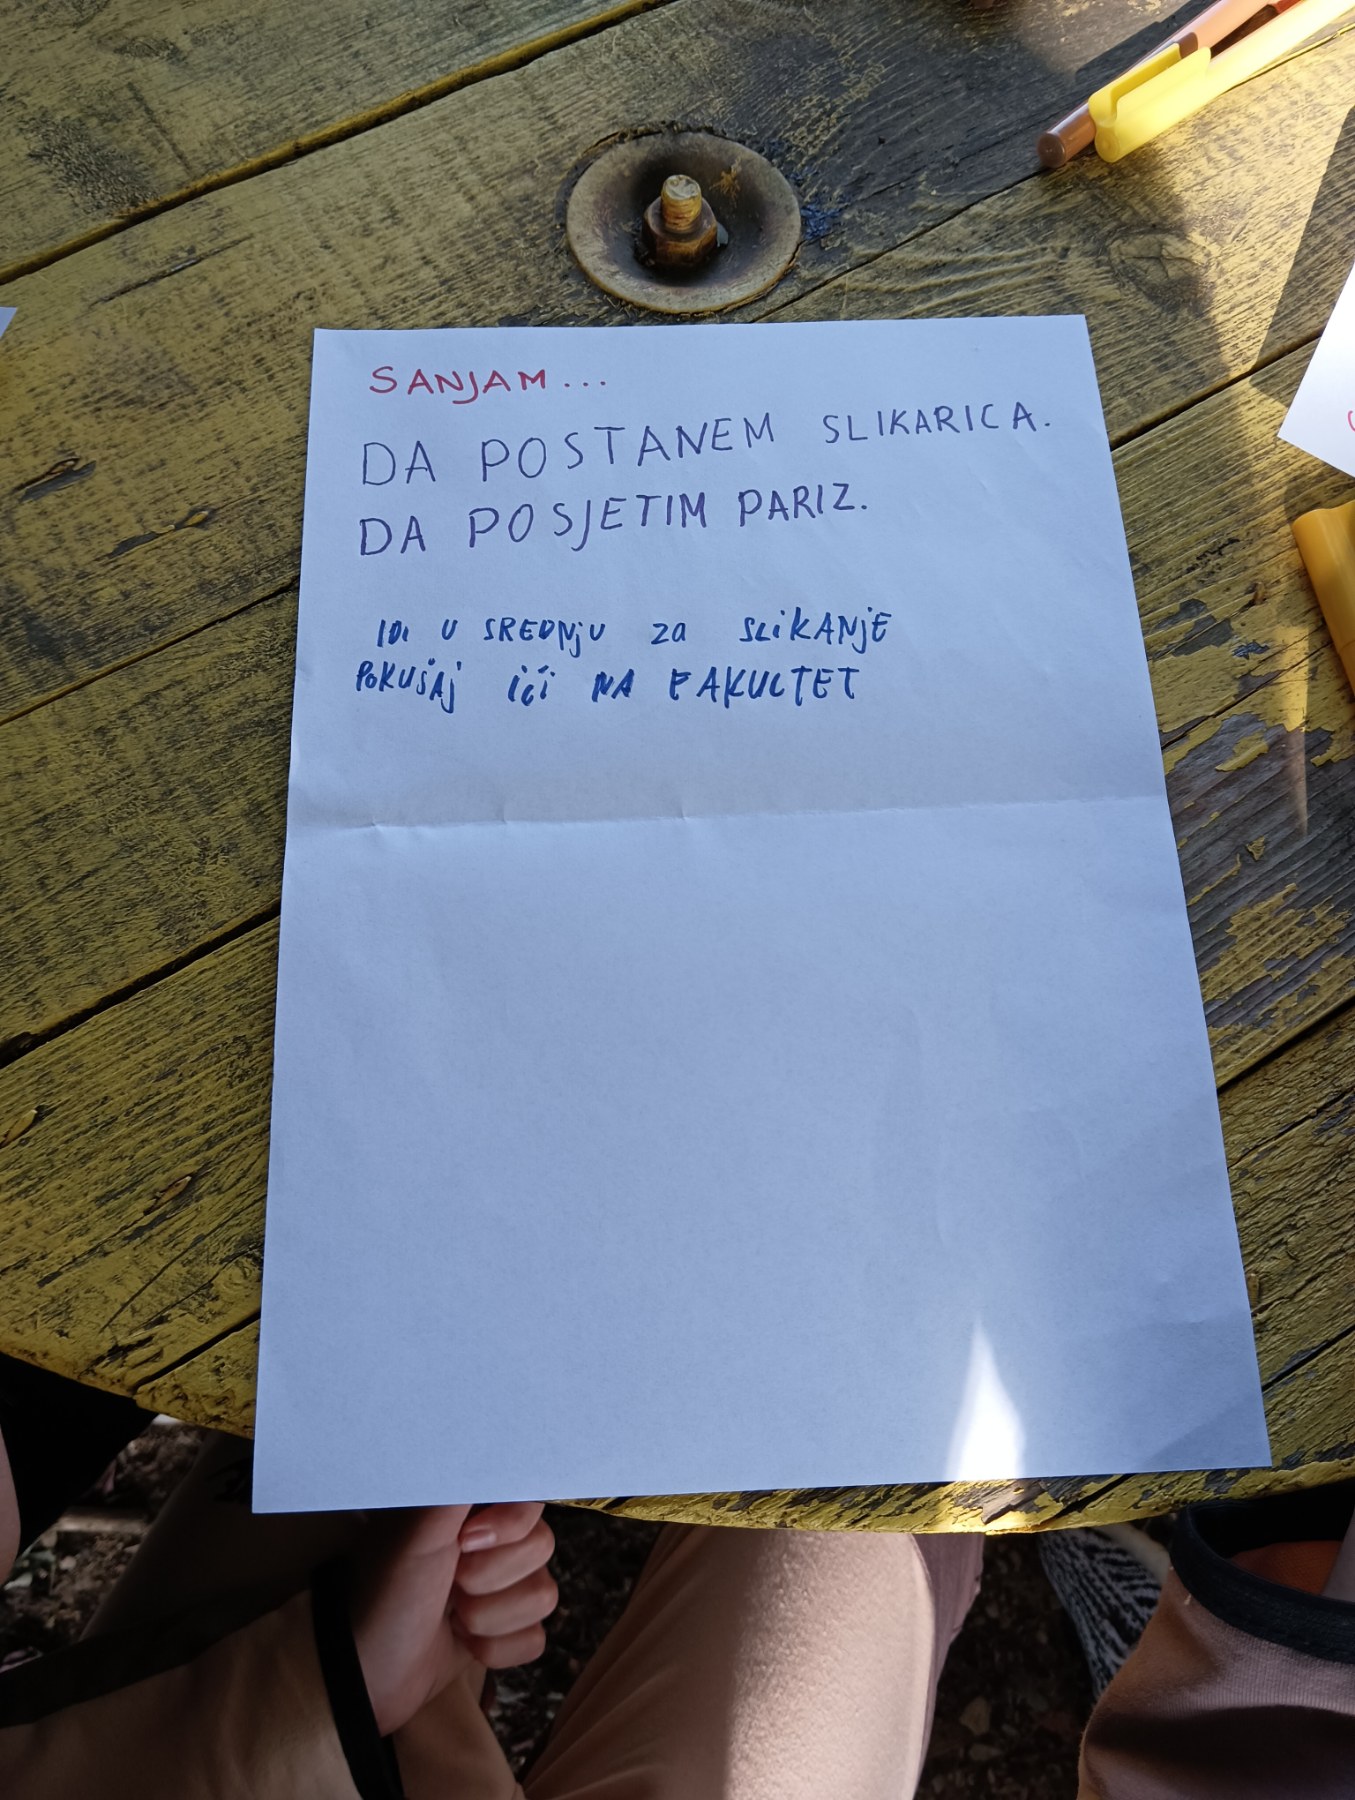 SANJAM...
DA POSTANEM SLIKARICA.
DA POSJETIM PARIZ.
IDi U SREDNjU Za SLiKANjE
POKUšAj ići NA FAKULTET